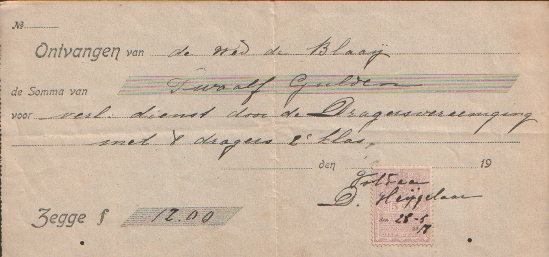 No
Ontvangen van de Wed de Blaaij
de Somma van Twaalf Gulden
voor verl. dienst door de Dragersvereeniging
met 8 dragers 2e klas,
den 19
Voldaan
D. Heijgelaar
Zegge f 12.00
28-5